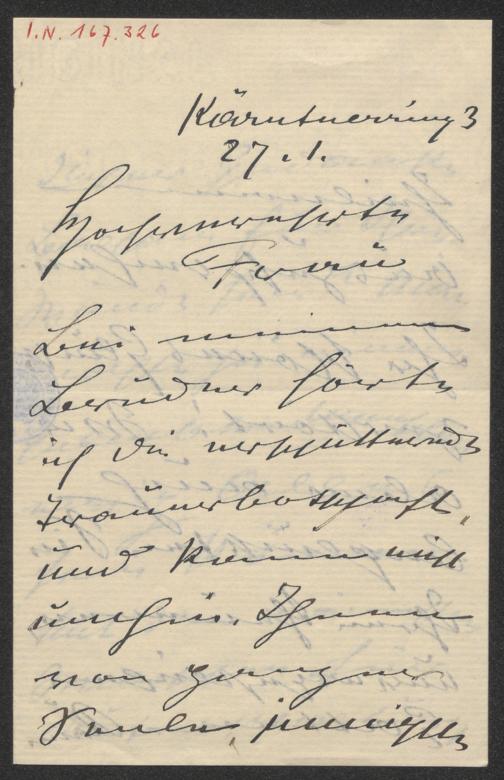 I.N. 167.326
Kärntnerring 3
27. 1.
Hochverehrte
Frau
Bei meinem
Bruder hörte
ich die erschütternde
Trauerbotschaft,
und kann nicht
umhin, Ihnen
von ganzer
Seele, innigste